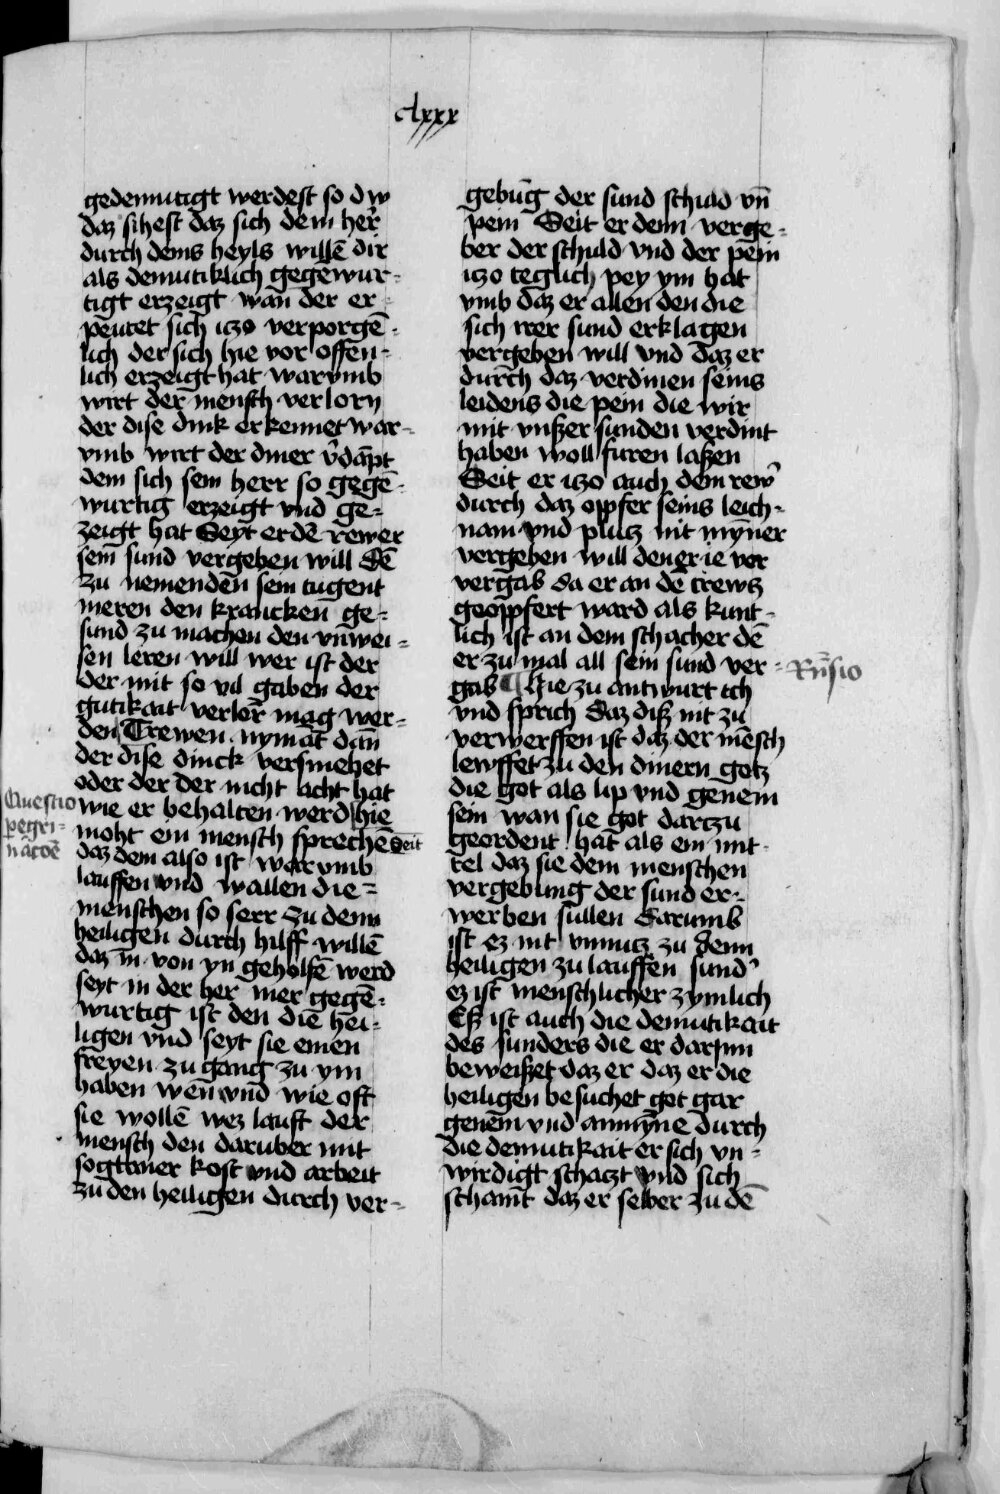 clxxx
gedemutigt werdest so dw
daz sihest daz sich dein her
durch deins heyls willē dir
als demutiklich gegewur-
tigt erzeigt wan der er-
peutet sich iczo verporgē-
lich der sich hie vor offen-
lich erzeigt hat warumb
wirt der mensch verlorn
der dise dink erkennet war-
vmb wirt der diner v̓dāpt
dem sich sein herr so gegē-
wurtig erzeigt vnd ge-
zeigt hat Seyt er dē rewer
sein sund vergeben will Dē
zu nemenden sein tugent
meren den krancken ge-
sund zu machen den vnwei-
sen leren will wer ist der
der mit so vil gaben der
gutikait verlēr mag wer-
den Trewen nymāt dān
der dise dinck versmehet
oder der der nicht acht hat
wie er behalten werd hie
moht ein mensch sprechē Seit
daz dem also ist warumb
lauffen vnd wallen die-
menschen so serr zu denn
heiligen durch hilff willē
daz in von yn geholfē werd
seyt in der her mer gegē-
wurtig ist den die hei-
ligen vnd seyt sie einen
freyen zu gang zu ym
haben wen vnd wie oft
sie wollē wez lauft der
mensch den daruber mit
sogtaner kost vnd arbeit
zu den heiligen durch ver-
Questio
peregri-
nacōe
gebūg der sund schuld vn̄
pein Seit er denn verge-
ber der schuld vnd der pein
iczo teglich pey ym hat
vmb daz er allen den die
sich irer sund erklagen
vergeben will vnd daz er
durch daz verdinen seins
leidens die pein die wir
mit vnßer sunden verdint
haben woll furen laßen
Seit er iczo auch dem rew̓
durch daz oppfer seins leich-
nam vnd plutz nit mynner
vergeben will den er ie vor
vergab da er an dē crewtz
geoppfert ward als kunt-
lich ist an dem schacher dē
er zu mal all sein sund ver-
gab ¶ Hie zu antwurt ich
vnd sprich daz diß nit zu
verwerffen ist daz der mēsch
lewffet zu den dinern gotz
die got als lip vnd genem
sein wan sie got dartzu
geordent hat als ein mit-
tel daz sie dem menschen
vergebung der sund er-
werben sullen Darumb
ist ez nit vnnutz zu denn
heiligen zu lauffen sund̓
ez ist menschlicher zymlich
Eß ist auch die demutikait
des sunders die er darjnn
beweißet daz er daz er die
heiligen besuchet got gar
genem vnd annyme durch
die demutikait er sich vn-
wirdigt schaczt vnd sich
schamt daz er selber zu dē
Rn̄sio